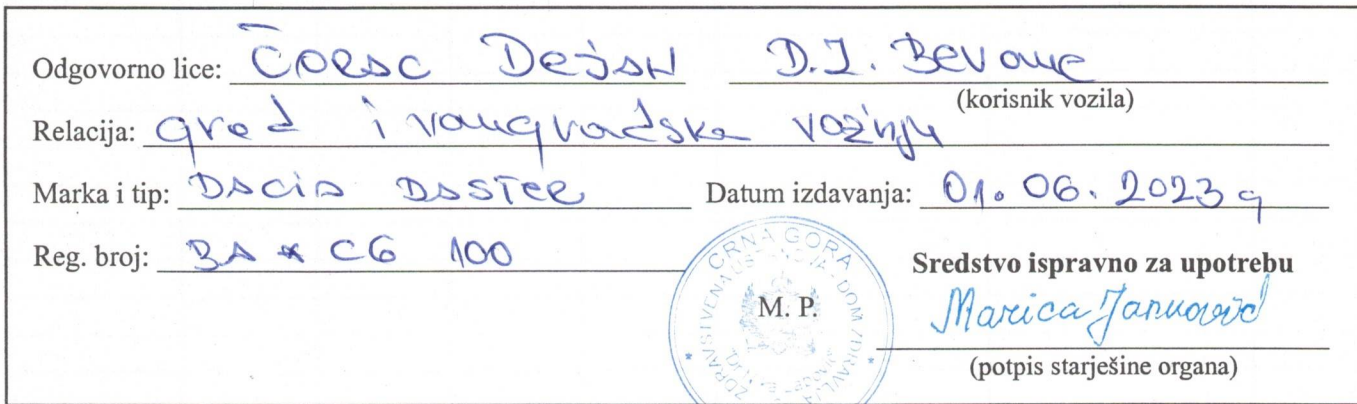 Odgovorno lice: Čorac Dejan D.Z. Berane
(korisnik vozila)
Relacija: grad i vangradska vožnja
Marka i tip: Dacia Daster Datum izdavanja: 01. 06. 2023 g
Reg. broj: BA * CG 100
CRNA GORA
ZDRAVSTVENA USTANOVA DOM ZDRAVLJA
M. P.
Sredstvo ispravno za upotrebu
Marica Janković
(potpis starješine organa)